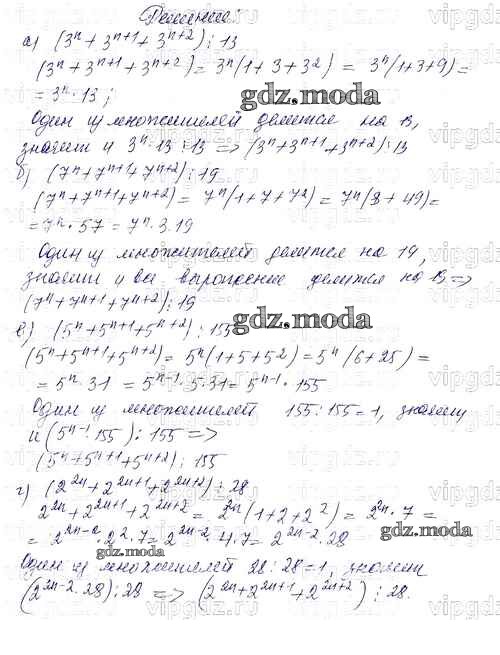 Решение:
а) (3ⁿ + 3ⁿ⁺¹ + 3ⁿ⁺²) ⋮ 13
(3ⁿ + 3ⁿ⁺¹ + 3ⁿ⁺²) = 3ⁿ(1 + 3 + 3²) = 3ⁿ(1+3+9) =
= 3ⁿ · 13 ;
gdz.moda
Один из множителей делится на 13,
значит и 3ⁿ · 13 ⋮ 13 => (3ⁿ + 3ⁿ⁺¹ + 3ⁿ⁺²) ⋮ 13
б) (7ⁿ + 7ⁿ⁺¹ + 7ⁿ⁺²) ⋮ 19
(7ⁿ + 7ⁿ⁺¹ + 7ⁿ⁺²) = 7ⁿ(1 + 7 + 7²) = 7ⁿ(8 + 49) =
= 7ⁿ · 57 = 7ⁿ · 3 · 19
Один из множителей делится на 19,
значит и все выражение делится на 19 =>
(7ⁿ + 7ⁿ⁺¹ + 7ⁿ⁺²) ⋮ 19
gdz.moda
в) (5ⁿ + 5ⁿ⁺¹ + 5ⁿ⁺²) ⋮ 155
(5ⁿ + 5ⁿ⁺¹ + 5ⁿ⁺²) = 5ⁿ(1 + 5 + 5²) = 5ⁿ(6 + 25) =
= 5ⁿ · 31 = 5ⁿ⁻¹ · 5 · 31 = 5ⁿ⁻¹ · 155
Один из множителей 155 : 155 = 1, значит
и (5ⁿ⁻¹ · 155) ⋮ 155 =>
(5ⁿ + 5ⁿ⁺¹ + 5ⁿ⁺²) ⋮ 155
г) (2²ⁿ + 2²ⁿ⁺¹ + 2²ⁿ⁺²) ⋮ 28
2²ⁿ + 2²ⁿ⁺¹ + 2²ⁿ⁺² = 2²ⁿ(1 + 2 + 2²) = 2²ⁿ · 7 =
gdz.moda
= 2²ⁿ⁻² · 2² · 7 = 2²ⁿ⁻² · 4 · 7 = 2²ⁿ⁻² · 28
gdz.moda
Один из множителей 28 : 28 = 1, значит
(2²ⁿ⁻² · 28) ⋮ 28 => (2²ⁿ + 2²ⁿ⁺¹ + 2²ⁿ⁺²) ⋮ 28.